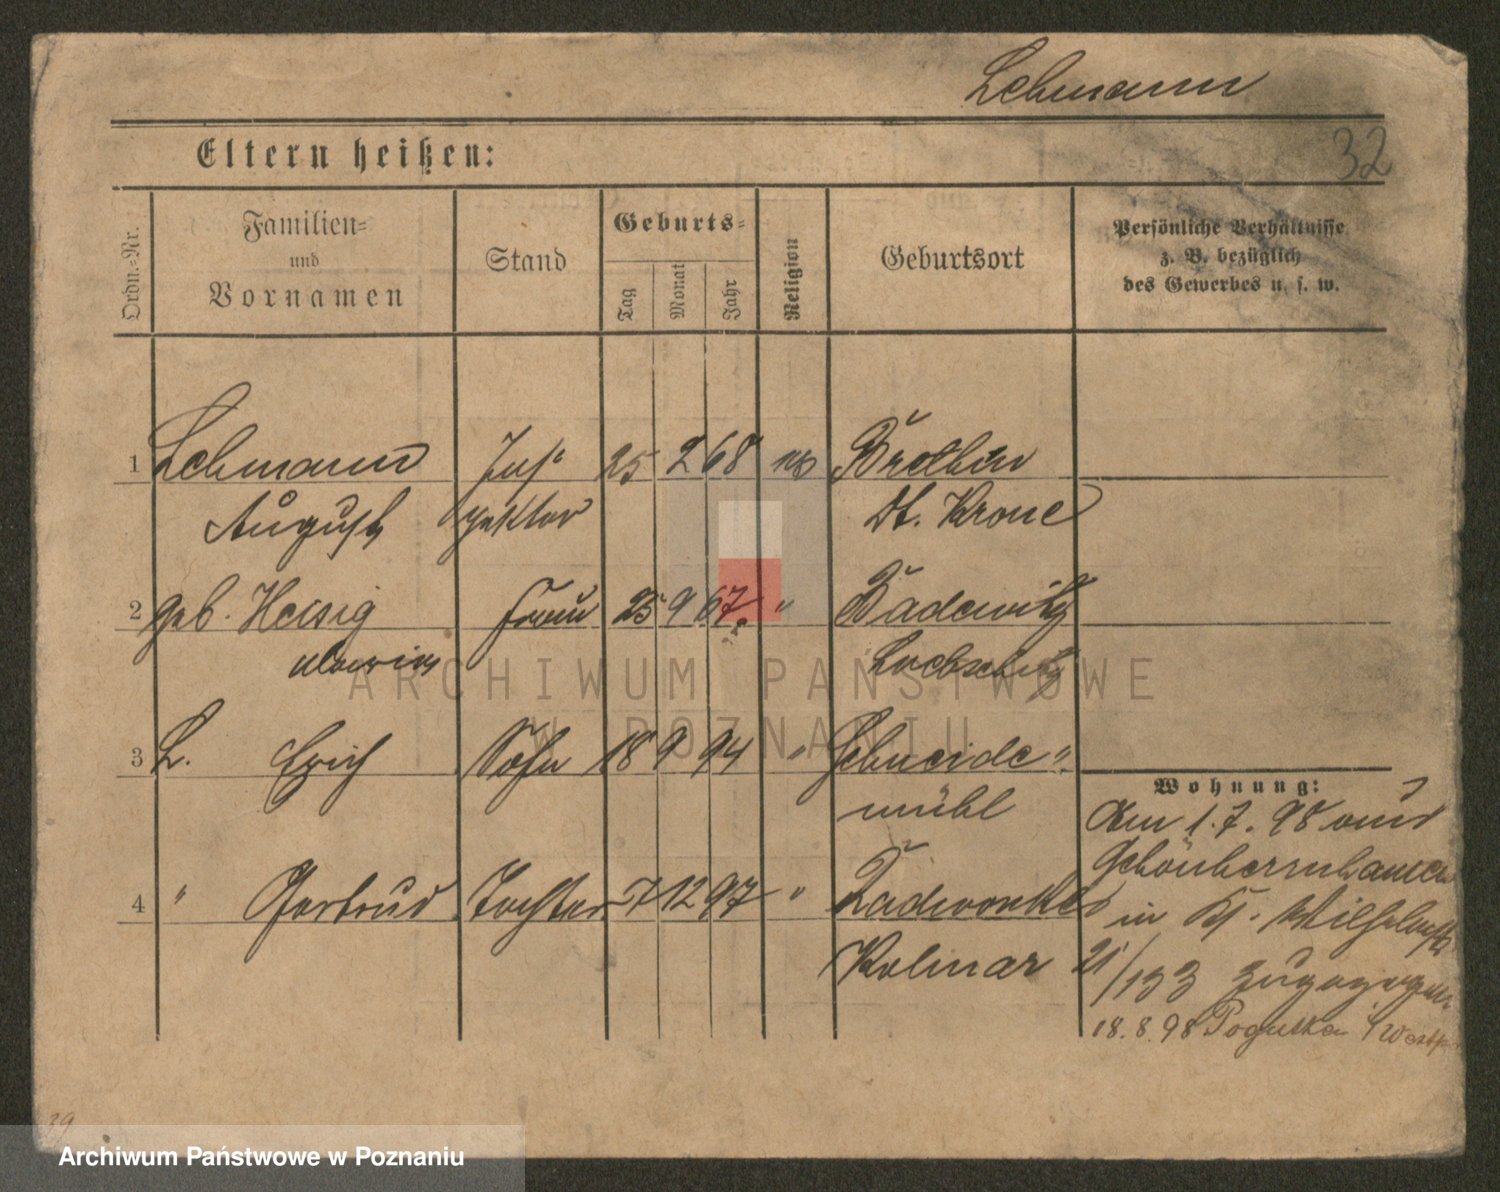 Lehmann
32
Eltern heißen:
Ordn.-Nr.
Familien-
und
Vornamen
Stand
Geburts-
Tag
Monat
Jahr
Religion
Geburtsort
Persönliche Verhältnisse
z. B. bezüglich
des Gewerbes u. s. w.
1 Lehmann Ins- 25 2 68 Brotzen
August pektor Dt. Krone
2 geb. Heisig Frau 25 9 67 "
3 L. Erich Sohn 18 9 94 " Schneide-
mühl
Wohnung:
Am 1. 7. 98 aus
in Kr.
4 " Gertrud Tochter 7 12 97 "
Kolmar
21/133 zugezogen
18. 8. 98 Pogutken i/Westpr.
39
ARCHIWUM PAŃSTWOWE
W POZNANIU
Archiwum Państwowe w Poznaniu